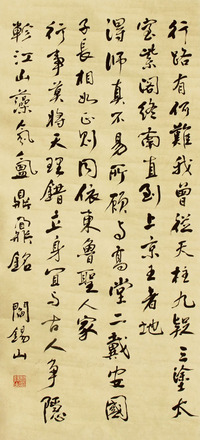 行路有何難我曾從天柱九疑三塗太
室紫閣終南直到上京王者地
得師真不易所願与高堂二戴安國
子長相如正則同依東魯聖人家
行事莫將天理錯立身宜与古人爭隱
軫江山藻氛氳鼎鼐銘
閻錫山